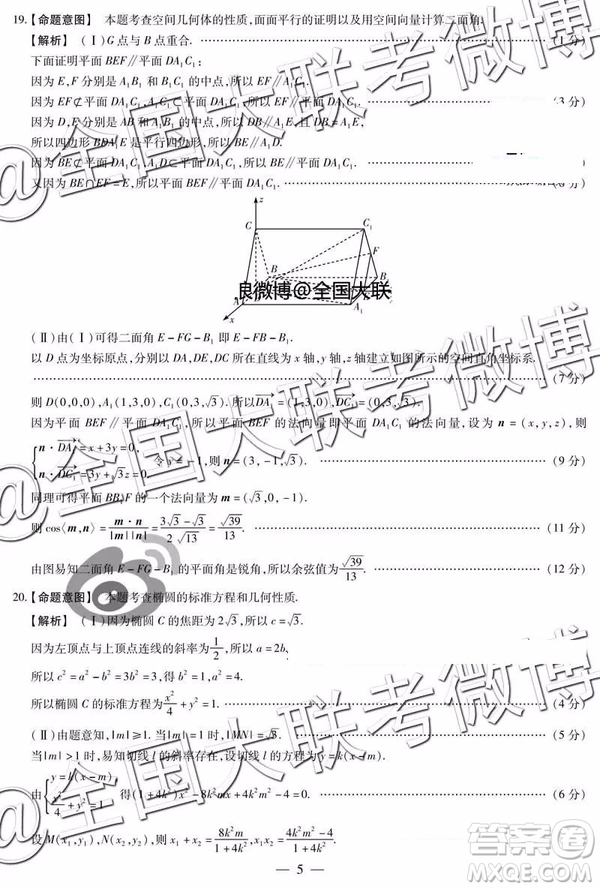 19.【命题意图】 本题考查空间几何体的性质,面面平行的证明以及用空间向量计算二面角.
【解析】 (Ⅰ)G点与B点重合.
下面证明平面BEF∥平面DA₁C₁:
因为E,F分别是A₁B₁和B₁C₁的中点,所以EF∥A₁C₁.
因为EF⊄平面DA₁C₁,A₁C₁⊂平面DA₁C₁,所以EF∥平面DA₁C₁. (3分)
因为D,E分别是AB和A₁B₁的中点,所以DB∥A₁E,且DB=A₁E.
所以四边形BDA₁E是平行四边形,所以BE∥A₁D.
因为BE⊄平面DA₁C₁,A₁D⊂平面DA₁C₁,所以BE∥平面DA₁C₁.
又因为BE∩EF=E,所以平面BEF∥平面DA₁C₁. (6分)
z
C
C₁
F
B
B₁
A₁
x
良微博@全国大联
(Ⅱ)由(Ⅰ)可得二面角E-FG-B₁即E-FB-B₁.
以D点为坐标原点,分别以DA,DE,DC所在直线为x轴,y轴,z轴建立如图所示的空间直角坐标系.
(7分)
则D(0,0,0),A₁(1,3,0),C₁(0,3,√3).所以DA₁=(1,3,0),DC₁=(0,3,√3).
因为平面BEF∥平面DA₁C₁,所以平面BEF的法向量即平面DA₁C₁的法向量,设为n=(x,y,z),则
{n·DA₁=x+3y=0, n·DC₁=3y+√3z=0, 令y=-1,则n=(3,-1,√3). (9分)
同理可得平面BB₁F的一个法向量为m=(√3,0,-1).
则cos⟨m,n⟩=m·n/|m||n|=(3√3-√3)/(2√13)=√39/13. (11分)
由图易知二面角E-FG-B₁的平面角是锐角,所以余弦值为√39/13. (12分)
20.【命题意图】 本题考查椭圆的标准方程和几何性质.
【解析】 (Ⅰ)因为椭圆C的焦距为2√3,所以c=√3.
因为左顶点与上顶点连线的斜率为1/2,所以a=2b,
所以c²=a²-b²=3b²=3,所以b²=1,a²=4.
所以椭圆C的标准方程为x²/4+y²=1. (4分)
(Ⅱ)由题意知,|m|≥1.当|m|=1时,|MN|=√3.
当|m|>1时,易知切线l的斜率存在,设切线l的方程为y=k(x-m).
由{y=k(x-m), x²/4+y²=1,得(1+4k²)x²-8k²mx+4k²m²-4=0. (6分)
设M(x₁,y₁),N(x₂,y₂),则x₁+x₂=8k²m/(1+4k²),x₁x₂=(4k²m²-4)/(1+4k²).
5
@全国大联考微博
@全国大联考微博
答案圈
MXQE.COM